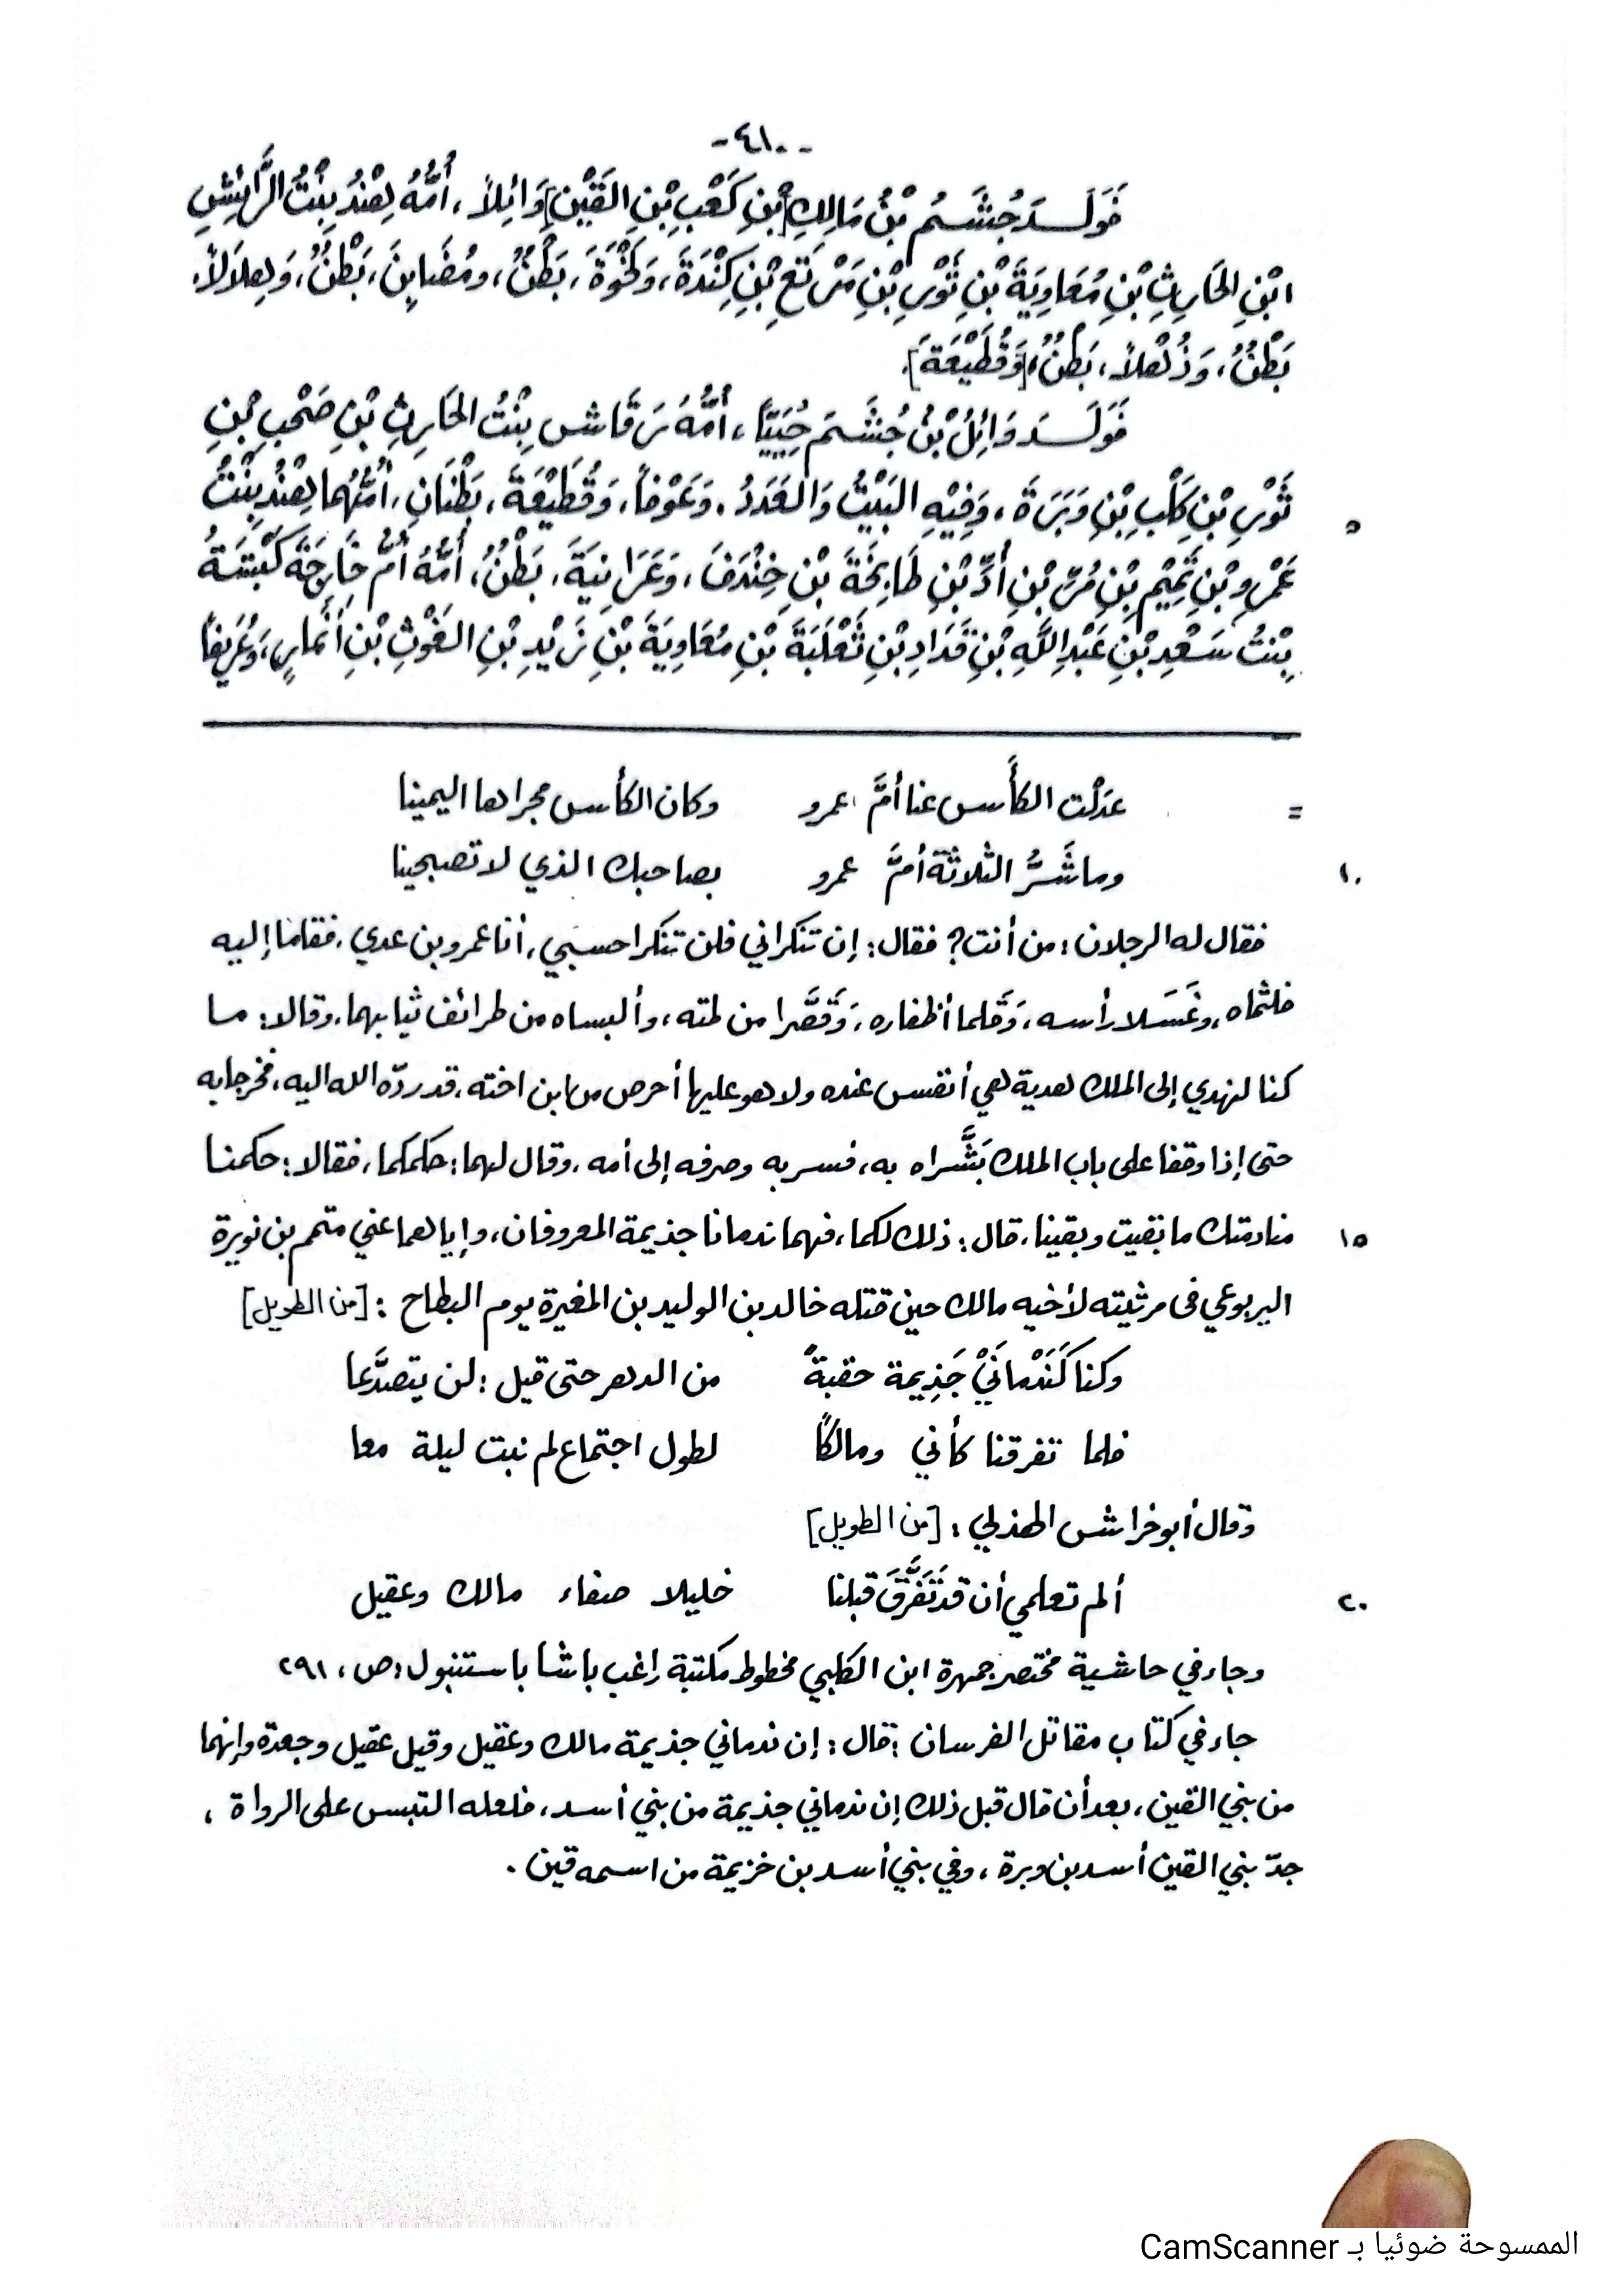 -٤١٠-
فَوَلَدَ جُشَمُ بْنُ مَالِكِ [بْنِ كَعْبِ بْنِ القَيْنِ] وَائِلاً، أُمُّهُ هِنْدُ بِنْتُ الرَّائِشِ
ابْنِ الحَارِثِ بْنِ مُعَاوِيَةَ بْنِ ثَوْرِ بْنِ مَرْتَعِ بْنِ كِنْدَةَ، وَنَخْوَةَ، بَطْنٌ، ومُضَابِنَ، بَطْنٌ، وَهِلَالاً،
بَطْنٌ، وَذُهْلاً، بَطْنٌ، [وَقُطَيْعَةَ].
فَوَلَدَ وَائِلُ بْنُ جُشَمَ حُيَيّاً، أُمُّهُ رَقَاشِ بِنْتُ الحَارِثِ بْنِ صَحْبِ بْنِ
ثَوْرِ بْنِ كَلْبِ بْنِ وَبَرَةَ، وَفِيْهِ البَيْتُ وَالعَدَدُ، وَعَوْفاً، وَقُطَيْعَةَ، بَطْنَانِ، أُمُّهُما هِنْدُ بِنْتُ
٥
عَمْرِو بْنِ تَمِيْمِ بْنِ مُرِّ بْنِ أُدِّ بْنِ طَابِخَةَ بْنِ خِنْدَفَ، وَعَرَانِيَةَ، بَطْنٌ، أُمُّهُ أُمُّ خَارِجَةَ كَبْشَةُ
بِنْتُ سَعْدِ بْنِ عَبْدِ اللَّهِ بْنِ قَدَادِ بْنِ ثَعْلَبَةَ بْنِ مُعَاوِيَةَ بْنِ زَيْدِ بْنِ الغَوْثِ بْنِ أَنْمَارٍ، وَعُرَيْفاً
= عدَلْت الكأَس عنا أمَّ عمرو وكان الكأس مجراها اليمينا
وما شَرُّ الثلاثة أمَّ عمرو بصاحبك الذي لا تصبحينا
١٠
فقال له الرجلان: من أنت؟ فقال: إن تنكراني فلن تنكرا حسبي، أنا عمرو بن عدي، فقاما إليه
فلثماه، وغَسَلا رأسه، وَقَلما أظفاره، وَقَصَّرا من لمته، وألبساه من طرائف ثيابهما، وقالا: ما
كنا لنهدي إلى الملك هدية هي أنفس عنده ولا هو عليها أحرص من ابن اخته، قد ردّه الله اليه، فخرجا به
حتى إذا وقفا على باب الملك بَشَّراه به، فسر به وصرفه إلى أمه، وقال لهما: حكمكما، فقالا: حكمنا
منادمتك ما بقيت وبقينا، قال: ذلك لكما، فهما ندمانا جذيمة المعروفان، وإياهما عني متمم بن نويرة
١٥
اليربوعي فى مرثيته لأخيه مالك حين قتله خالد بن الوليد بن المغيرة يوم البطاح : [من الطويل]
وكنا كَنَدْمانَيْ جَذِيمة حقبةً من الدهر حتى قيل : لن يتصدَّعا
فلما تفرقنا كأني ومالكاً لطول اجتماع لم نبت ليلة معا
وقال أبو خراش الهذلي : [من الطويل]
ألم تعلمي أن قد تَفَرَّقَ قبلنا خليلا صفاء مالك وعقيل
٢٠
وجاء في حاشية مختصر جمهرة ابن الكلبي مخطوط مكتبة راغب باشا باستنبول: ص، ٢٩١
جاء في كتاب مقاتل الفرسان : قال : إن ندماني جذيمة مالك وعقيل وقيل عقيل وجعدة وإنهما
من بني القين، بعد أن قال قبل ذلك إن ندماني جذيمة من بني أسد، فلعله التبس على الرواة ،
جدّ بني القين أسد بن وبرة ، وفي بني أسد بن خزيمة من اسمه قين .
الممسوحة ضوئيا بـ CamScanner